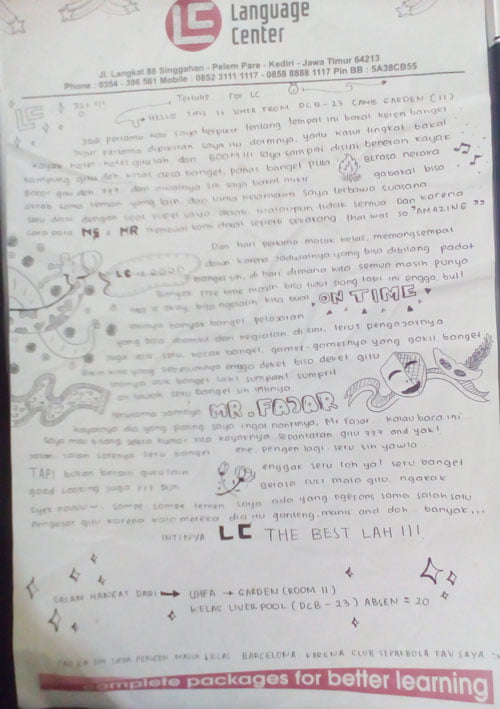 LC
Language
Center
Jl. Langkat 88 Singgahan - Pelem Pare - Kediri - Jawa Timur 64213
Phone : 0354 - 396 561 Mobile : 0852 3111 1117 - 0858 8888 1117 Pin BB : 5A38CB55
LC
Tertulis : For LC
HELLO THIS IS UHFA FROM DCB - 23 CAMB GARDEN (11)
Jadi pertama kali saya berpikir tentang tempat ini bakal keren banget
Jujur pertama dipikiran saya itu dormnya, yaitu kasur tingkat bakal
kayak hotel-hotel gitu lah, dan BOOM!!! saya sampai disini beneran kayak
kampung gitu deh, khas desa banget, panas banget pula. Berasa neraka
bocor gitu deh ??? dan awalnya sih saya bakal mikir gabakal bisa
akrab sama teman yang lain, dan lama kelamaan saya terbawa suasana
dengan Dan karena
cara para MS & MR membuat kami dapat seperti sekarang that was so "AMAZING"
Dan hari pertama masuk kelas, memang sempat
down karena jadwalnya yang bisa dibilang padat
LC is GOOD banget sih, di hari dimana kita semua masih punya
banyak free time masih bisa tidur siang tapi ini engga, but!
it's okay, bisa ngelatih kita buat ON TIME
intinya banyak banget pelajaran
yang bisa diambil dari kegiatan di sini, terus pengajarnya
juga asik seru, kocak banget, games-gamesnya yang gokil banget
yang sebelumnya engga deket bisa deket gitu
intinya asik banget lah! sumpah! sumpril
banget sih intinya
terutama jamnya MR. FAJAR
kayaknya dia yang paling saya ingat nantinya, Mr Fajar kalau baca ini...
Saya mau bilang selera humor kita kayaknya sepantaran gitu ??? and yak!
jalan-jalan sorenya seru banget ene, pengen lagi. seru sih yawla
TAPI bukan berarti guru lain enggak seru loh ya! seru banget
good looking juga ??? Duh Berasa cuci mata gitu, ngakak
Syet nouuu~ sampe-sampe temen saya ada yang ngefans sama salah satu
Pengajar gitu karena kata mereka dia itu ganteng, manis and doh banyak...
INTINYA LC THE BEST LAH !!!
SALAM HANGAT DARI → UHFA → GARDEN (ROOM 11)
KELAS LIVERPOOL (DCB - 23) ABSEN = 20
SIH SAYA PENGEN MASUK KELAS BARCELONA KARENA CLUB SEPAKBOLA FAV SAYA
complete packages for better learning